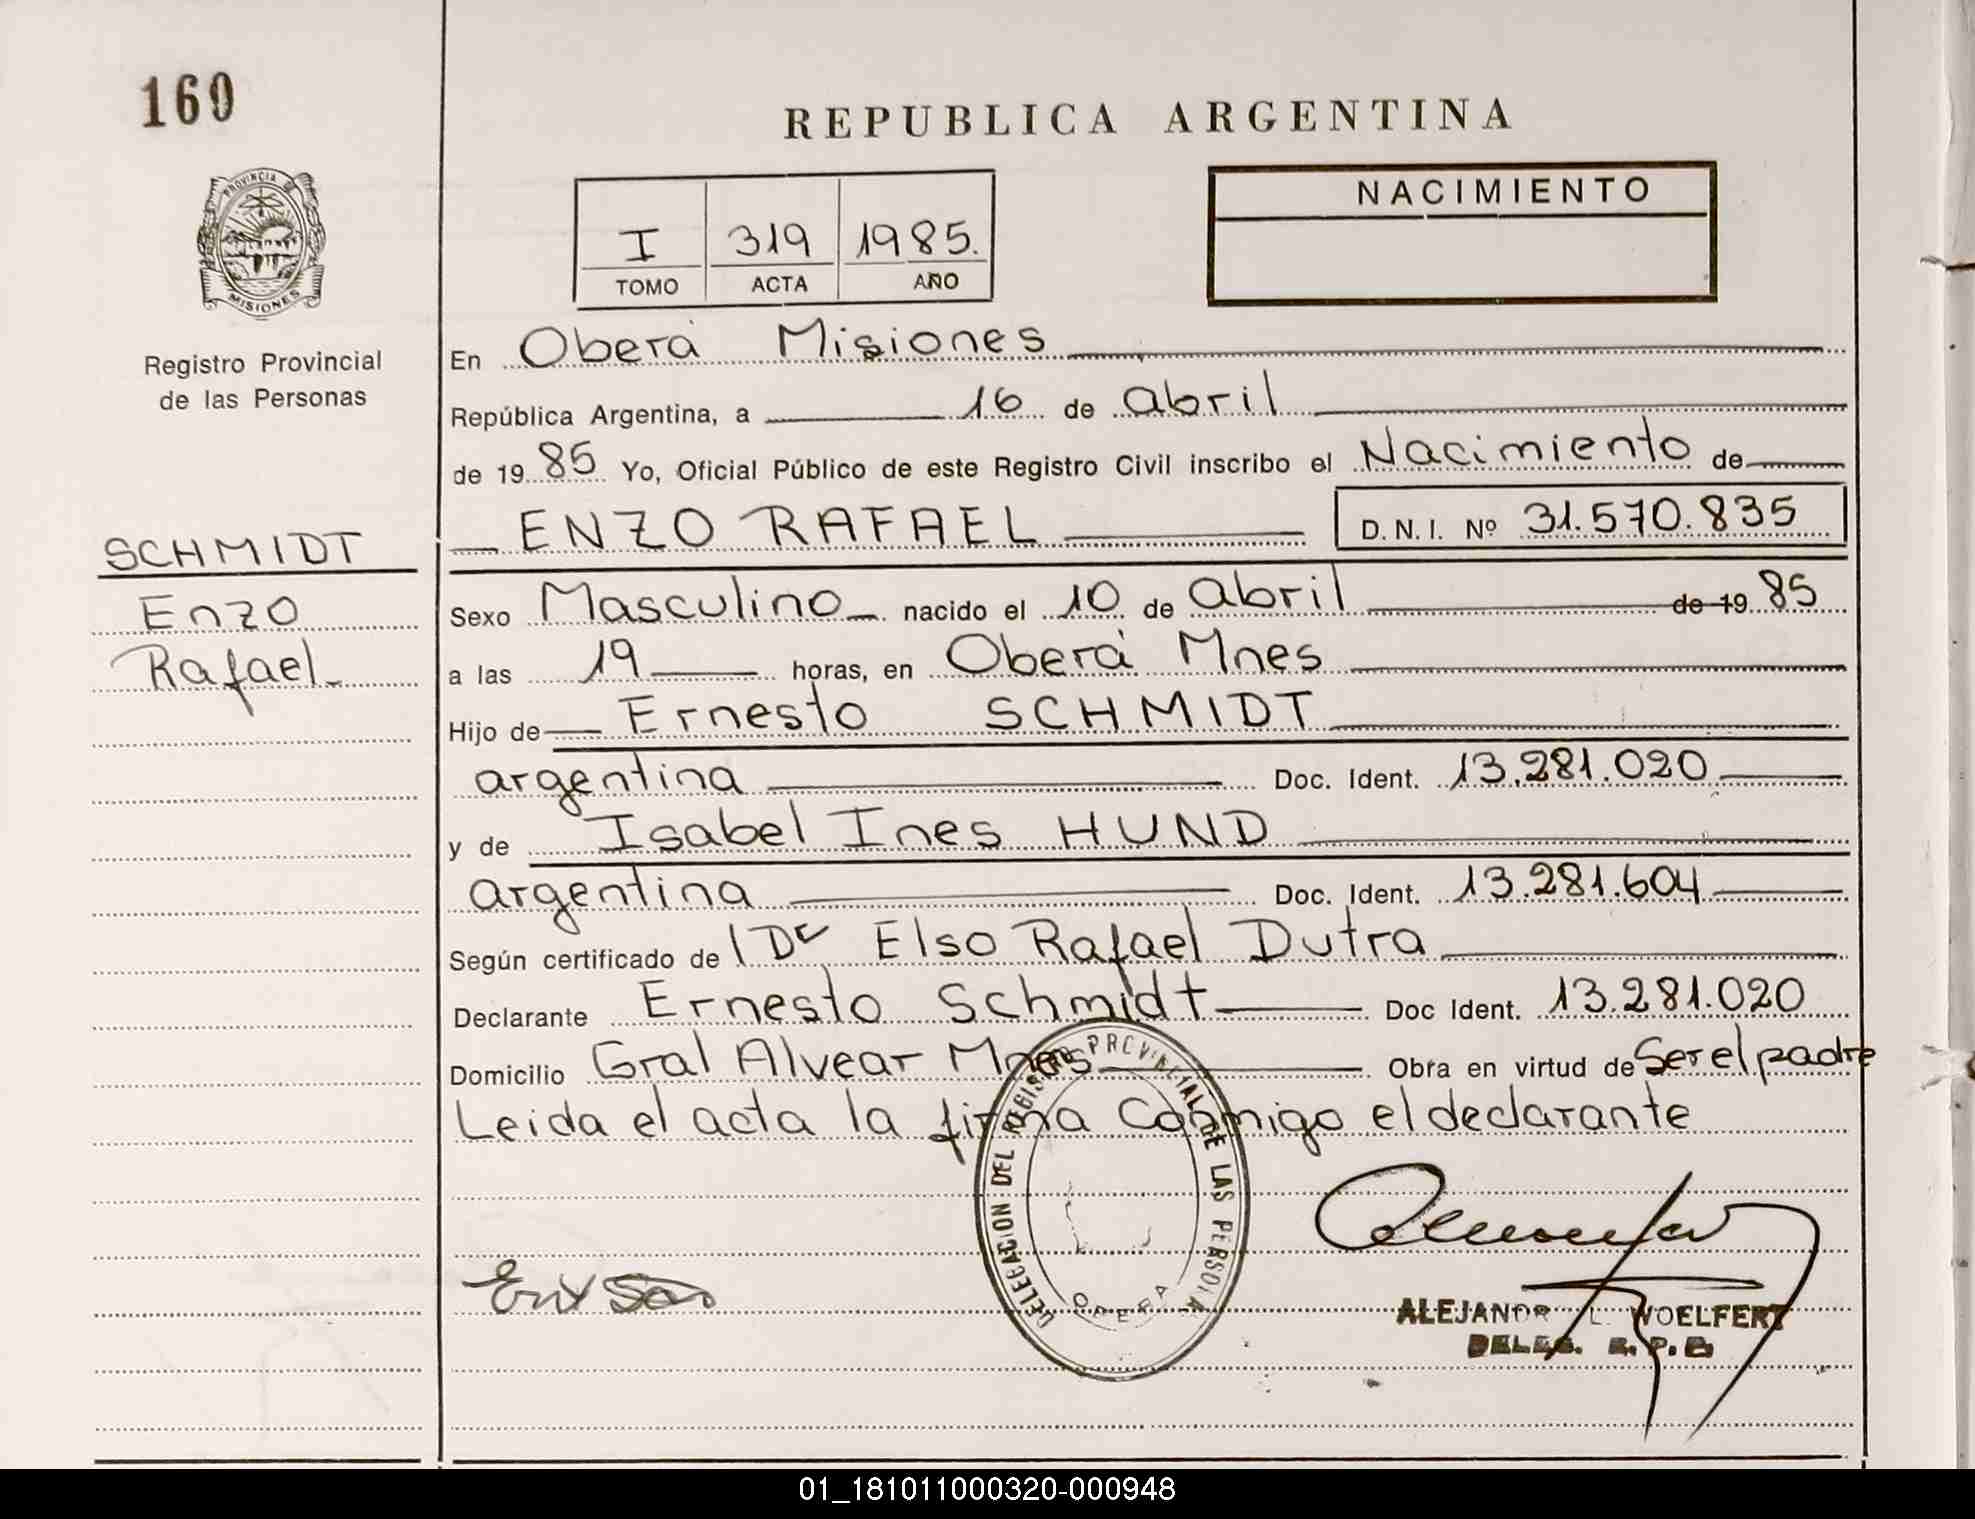 160
REPUBLICA ARGENTINA
PROVINCIA DE
MISIONES
Registro Provincial
de las Personas
I 319 1985.
TOMO ACTA AÑO
NACIMIENTO
En Oberá Misiones
República Argentina, a 16 de abril
de 19 85 Yo, Oficial Público de este Registro Civil inscribo el Nacimiento de
ENZO RAFAEL D.N.I. Nº 31.570.835
SCHMIDT
Enzo
Rafael
Sexo Masculino nacido el 10 de abril de 19 85
a las 19 horas, en Oberá Mnes
Hijo de Ernesto SCHMIDT
argentina Doc. Ident. 13.281.020
y de Isabel Ines HUND
argentina Doc. Ident. 13.281.604
Según certificado de l Dr Elso Rafael Dutra
Declarante Ernesto Schmidt Doc Ident. 13.281.020
Domicilio Gral Alvear Mnes Obra en virtud de Ser el padre
Leida el acta la firma Conmigo el declarante
DELEGACION DEL REGISTRO PROVINCIAL DE LAS PERSONA
ALEJANDR L. WOELFERT
DELEG.
01_181011000320-000948